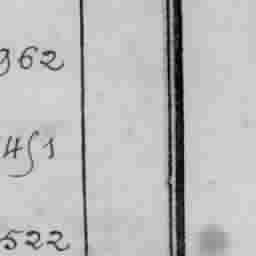 962
451
522